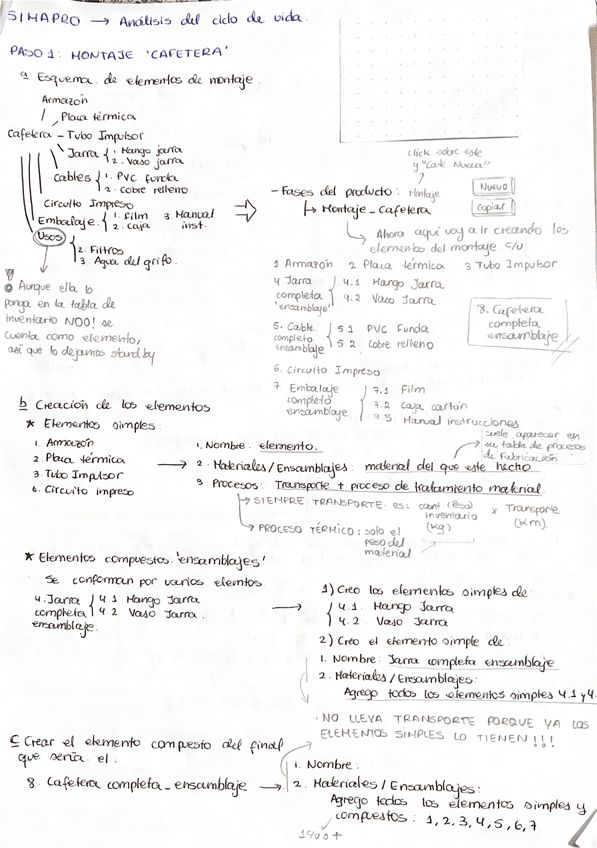 SIMAPRO → Análisis del ciclo de vida.
PASO 1: MONTAJE 'CAFETERA'
a Esquema de elementos de montaje.
Armazón
Placa térmica
Cafetera - Tubo Impulsor
Jarra 1. Mango jarra
2. Vaso jarra
Cables 1. PVC funda
2. Cobre relleno
Circuito Impreso
Embalaje 1. Film 3 Manual
2. caja inst.
Usos
2. Filtros
3. Agua del grifo.
Aunque ella lo
ponga en la tabla de
inventario NOO! se
cuenta como elemento,
así que lo dejamos stand by
click sobre este
y "Cafe Nueva"
- Fases del producto: Montaje
Nuevo
Copiar
↳ Montaje_Cafetera
Ahora aquí voy a ir creando los
elementos del montaje s/u
1 Armazón 2 Placa térmica 3 Tubo Impulsor
4 Jarra 4.1 Mango Jarra
completa 4.2 Vaso Jarra.
'ensamblaje'
5. Cable 5.1 PVC Funda
completo 5.2 Cobre relleno
ensamblaje
6. Circuito Impreso
7 Embalaje 7.1 Film
completo 7.2 Caja cartón
ensamblaje 7.3 Manual instrucciones
8. Cafetera
completa
ensamblaje
b Creación de los elementos
★ Elementos simples:
1. Armazón
2. Placa térmica
3 Tubo Impulsor
6. Circuito impreso
1. Nombre: elemento.
2. Materiales/Ensamblajes: material del que este hecho
3 Procesos: Transporte + proceso de tratamiento material
suele aparecer en
su tabla de procesos
de Fabricación
→ SIEMPRE TRANSPORTE. es: cant (Peso) inventario (Kg) x Transporte (Km).
→ PROCESO TÉRMICO: solo el
peso del
material
★ Elementos compuestos 'ensamblajes'
Se conforman por varios elemtos
4. Jarra 4.1 Mango Jarra
completa 4.2 Vaso Jarra.
ensamblaje.
1) Creo los elementos simples de:
4.1. Mango Jarra
4.2 Vaso Jarra
2) Creo el elemento simple de:
1. Nombre: Jarra completa ensamblaje
2. Materiales/Ensamblajes:
Agrego todos los elementos simples 4.1 y 4.
· NO LLEVA TRANSPORTE PORQUE YA LOS
ELEMENTOS SIMPLES LO TIENEN!!!
c Crear el elemento compuesto del final
que sería el:
8. Cafetera completa_ensamblaje →
1. Nombre:
2. Materiales/Ensamblajes:
Agrego todos los elementos simples y
compuestos: 1, 2, 3, 4, 5, 6, 7